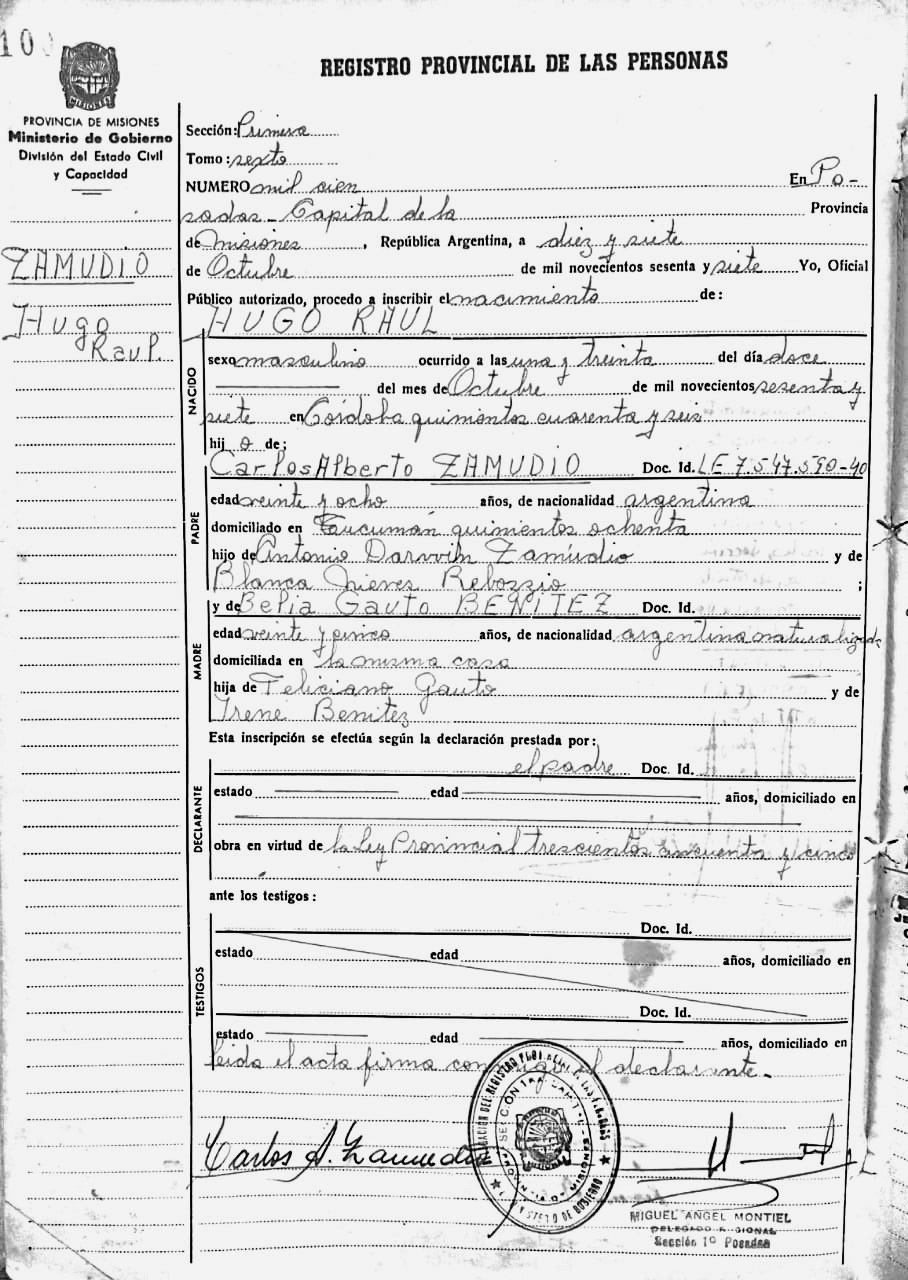 REGISTRO PROVINCIAL DE LAS PERSONAS
PROVINCIA DE MISIONES
Ministerio de Gobierno
División del Estado Civil
y Capacidad
ZAMUDIO
Hugo
Raul.
Sección: Primera
Tomo: sexto
NUMERO mil cien En Po-
sadas - Capital de la Provincia
de Misiones, República Argentina, a diez y siete
de Octubre de mil novecientos sesenta y siete Yo, Oficial
Público autorizado, procedo a inscribir el nacimiento de:
HUGO RAUL
NACIDO
sexo masculino ocurrido a las una y treinta del día doce
del mes de Octubre de mil novecientos sesenta y
siete en Córdoba quinientos cuarenta y seis
hijo de:
Carlos Alberto ZAMUDIO Doc. Id. LE 7.547.590-40
PADRE
edad veinte y ocho años, de nacionalidad argentina
domiciliado en Tucumán quinientos ochenta
hijo de Antonio Darwin Zamudio y de
Blanca Nieves Rebozzio ;
y de Belia Gauto BENITEZ Doc. Id.
MADRE
edad veinte y cinco años, de nacionalidad argentina naturalizada
domiciliada en la misma casa
hija de Feliciano Gauto y de
Irene Benitez
Esta inscripción se efectúa según la declaración prestada por:
el padre Doc. Id.
DECLARANTE
estado edad años, domiciliado en
obra en virtud de la Ley Provincial trescientos cincuenta y cinco
ante los testigos:
Doc. Id.
TESTIGOS
estado edad años, domiciliado en
Doc. Id.
estado edad años, domiciliado en
leida el acta firma conmigo el declarante.-
Carlos A. Zamudio
MIGUEL ANGEL MONTIEL
DELEGADO REGIONAL
Sección 1º Posadas